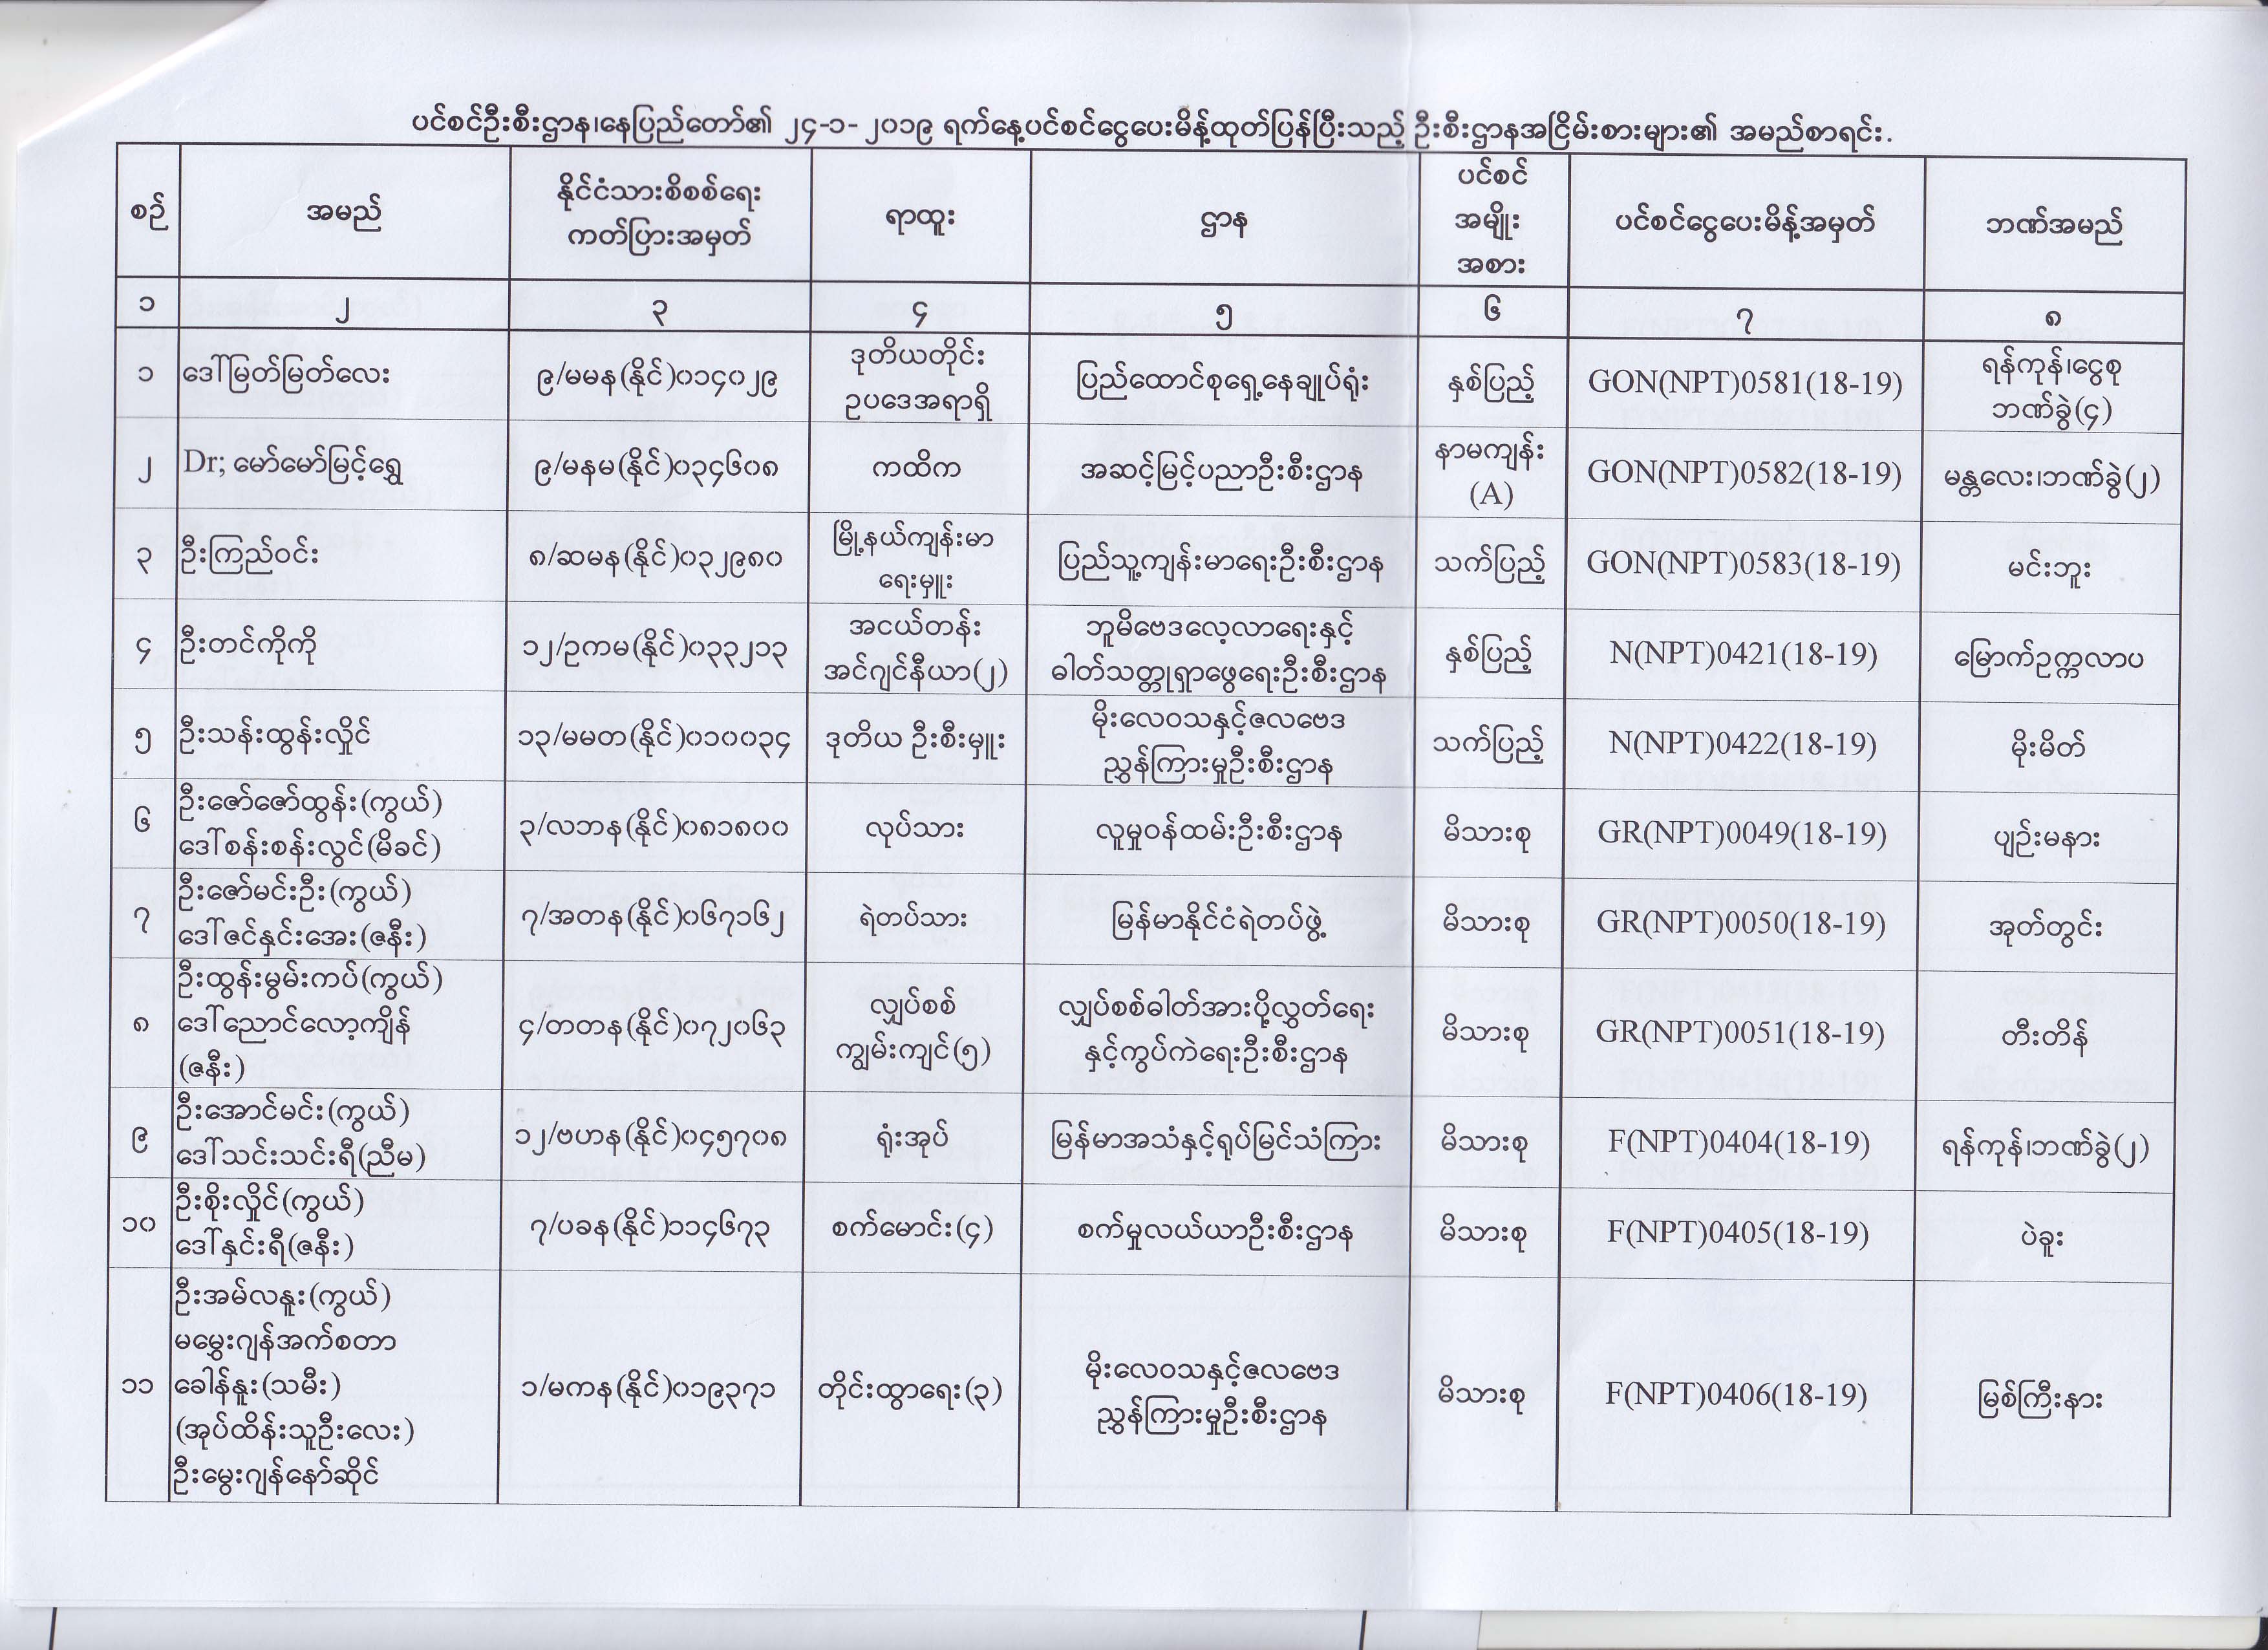 ပင်စင်ဦးစီးဌာန၊နေပြည်တော်၏ ၂၄-၁-၂၀၁၉ ရက်နေ့ပင်စင်ငွေပေးမိန့်ထုတ်ပြန်ပြီးသည့် ဦးစီးဌာနအငြိမ်းစားများ၏ အမည်စာရင်း.
စဉ်
အမည်
နိုင်ငံသားစိစစ်ရေး
ကတ်ပြားအမှတ်
ရာထူး
ဌာန
ပင်စင်
အမျိုး
အစား
ပင်စင်ငွေပေးမိန့်အမှတ်
ဘဏ်အမည်
၁ ၂ ၃ ၄ ၅ ၆ ၇ ၈
၁
ဒေါ်မြတ်မြတ်လေး
၉/မမန(နိုင်)၀၁၄၀၂၉
ဒုတိယတိုင်း
ဥပဒေအရာရှိ
ပြည်ထောင်စုရှေ့နေချုပ်ရုံး
နှစ်ပြည့်
GON(NPT)0581(18-19)
ရန်ကုန်၊ငွေစု
ဘဏ်ခွဲ(၄)
၂
Dr; မော်မော်မြင့်ရွှေ
၉/မနမ(နိုင်)၀၃၄၆၀၈
ကထိက
အဆင့်မြင့်ပညာဦးစီးဌာန
နာမကျန်း
(A)
GON(NPT)0582(18-19)
မန္တလေး၊ဘဏ်ခွဲ(၂)
၃
ဦးကြည်ဝင်း
၈/ဆမန(နိုင်)၀၃၂၉၈၀
မြို့နယ်ကျန်းမာ
ရေးမှူး
ပြည်သူ့ကျန်းမာရေးဦးစီးဌာန
သက်ပြည့်
GON(NPT)0583(18-19)
မင်းဘူး
၄
ဦးတင်ကိုကို
၁၂/ဥကမ(နိုင်)၀၃၃၂၁၃
အငယ်တန်း
အင်ဂျင်နီယာ(၂)
ဘူမိဗေဒလေ့လာရေးနှင့်
ဓါတ်သတ္တုရှာဖွေရေးဦးစီးဌာန
နှစ်ပြည့်
N(NPT)0421(18-19)
မြောက်ဥက္ကလာပ
၅
ဦးသန်းထွန်းလှိုင်
၁၃/မမတ(နိုင်)၀၁၀၀၃၄
ဒုတိယ ဦးစီးမှူး
မိုးလေဝသနှင့်ဇလဗေဒ
ညွှန်ကြားမှုဦးစီးဌာန
သက်ပြည့်
N(NPT)0422(18-19)
မိုးမိတ်
၆
ဦးဇော်ဇော်ထွန်း(ကွယ်)
ဒေါ်စန်းစန်းလွင်(မိခင်)
၃/လဘန(နိုင်)၀၈၁၈၀၀
လုပ်သား
လူမှုဝန်ထမ်းဦးစီးဌာန
မိသားစု
GR(NPT)0049(18-19)
ပျဉ်းမနား
၇
ဦးဇော်မင်းဦး(ကွယ်)
ဒေါ်ဇင်နှင်းအေး(ဇနီး)
၇/အတန(နိုင်)၀၆၇၁၆၂
ရဲတပ်သား
မြန်မာနိုင်ငံရဲတပ်ဖွဲ့
မိသားစု
GR(NPT)0050(18-19)
အုတ်တွင်း
၈
ဦးထွန်းမွမ်းကပ်(ကွယ်)
ဒေါ်ညောင်လော့ကျိန်
(ဇနီး)
၄/တတန(နိုင်)၀၇၂၀၆၃
လျှပ်စစ်
ကျွမ်းကျင်(၅)
လျှပ်စစ်ဓါတ်အားပို့လွှတ်ရေး
နှင့်ကွပ်ကဲရေးဦးစီးဌာန
မိသားစု
GR(NPT)0051(18-19)
တီးတိန်
၉
ဦးအောင်မင်း(ကွယ်)
ဒေါ်သင်းသင်းရီ(ညီမ)
၁၂/ဗဟန(နိုင်)၀၄၅၇၀၈
ရုံးအုပ်
မြန်မာအသံနှင့်ရုပ်မြင်သံကြား
မိသားစု
F(NPT)0404(18-19)
ရန်ကုန်၊ဘဏ်ခွဲ(၂)
၁၀
ဦးစိုးလှိုင်(ကွယ်)
ဒေါ်နှင်းရီ(ဇနီး)
၇/ပခန(နိုင်)၁၁၄၆၇၃
စက်မောင်း(၄)
စက်မှုလယ်ယာဦးစီးဌာန
မိသားစု
F(NPT)0405(18-19)
ပဲခူး
၁၁
ဦးအမ်လနူး(ကွယ်)
မမွှေးဂျန်အက်စတာ
ခေါန်နူး(သမီး)
(အုပ်ထိန်းသူဦးလေး)
ဦးမွေးဂျန်နော်ဆိုင်
၁/မကန(နိုင်)၀၁၉၃၇၁
တိုင်းထွာရေး(၃)
မိုးလေဝသနှင့်ဇလဗေဒ
ညွှန်ကြားမှုဦးစီးဌာန
မိသားစု
F(NPT)0406(18-19)
မြစ်ကြီးနား